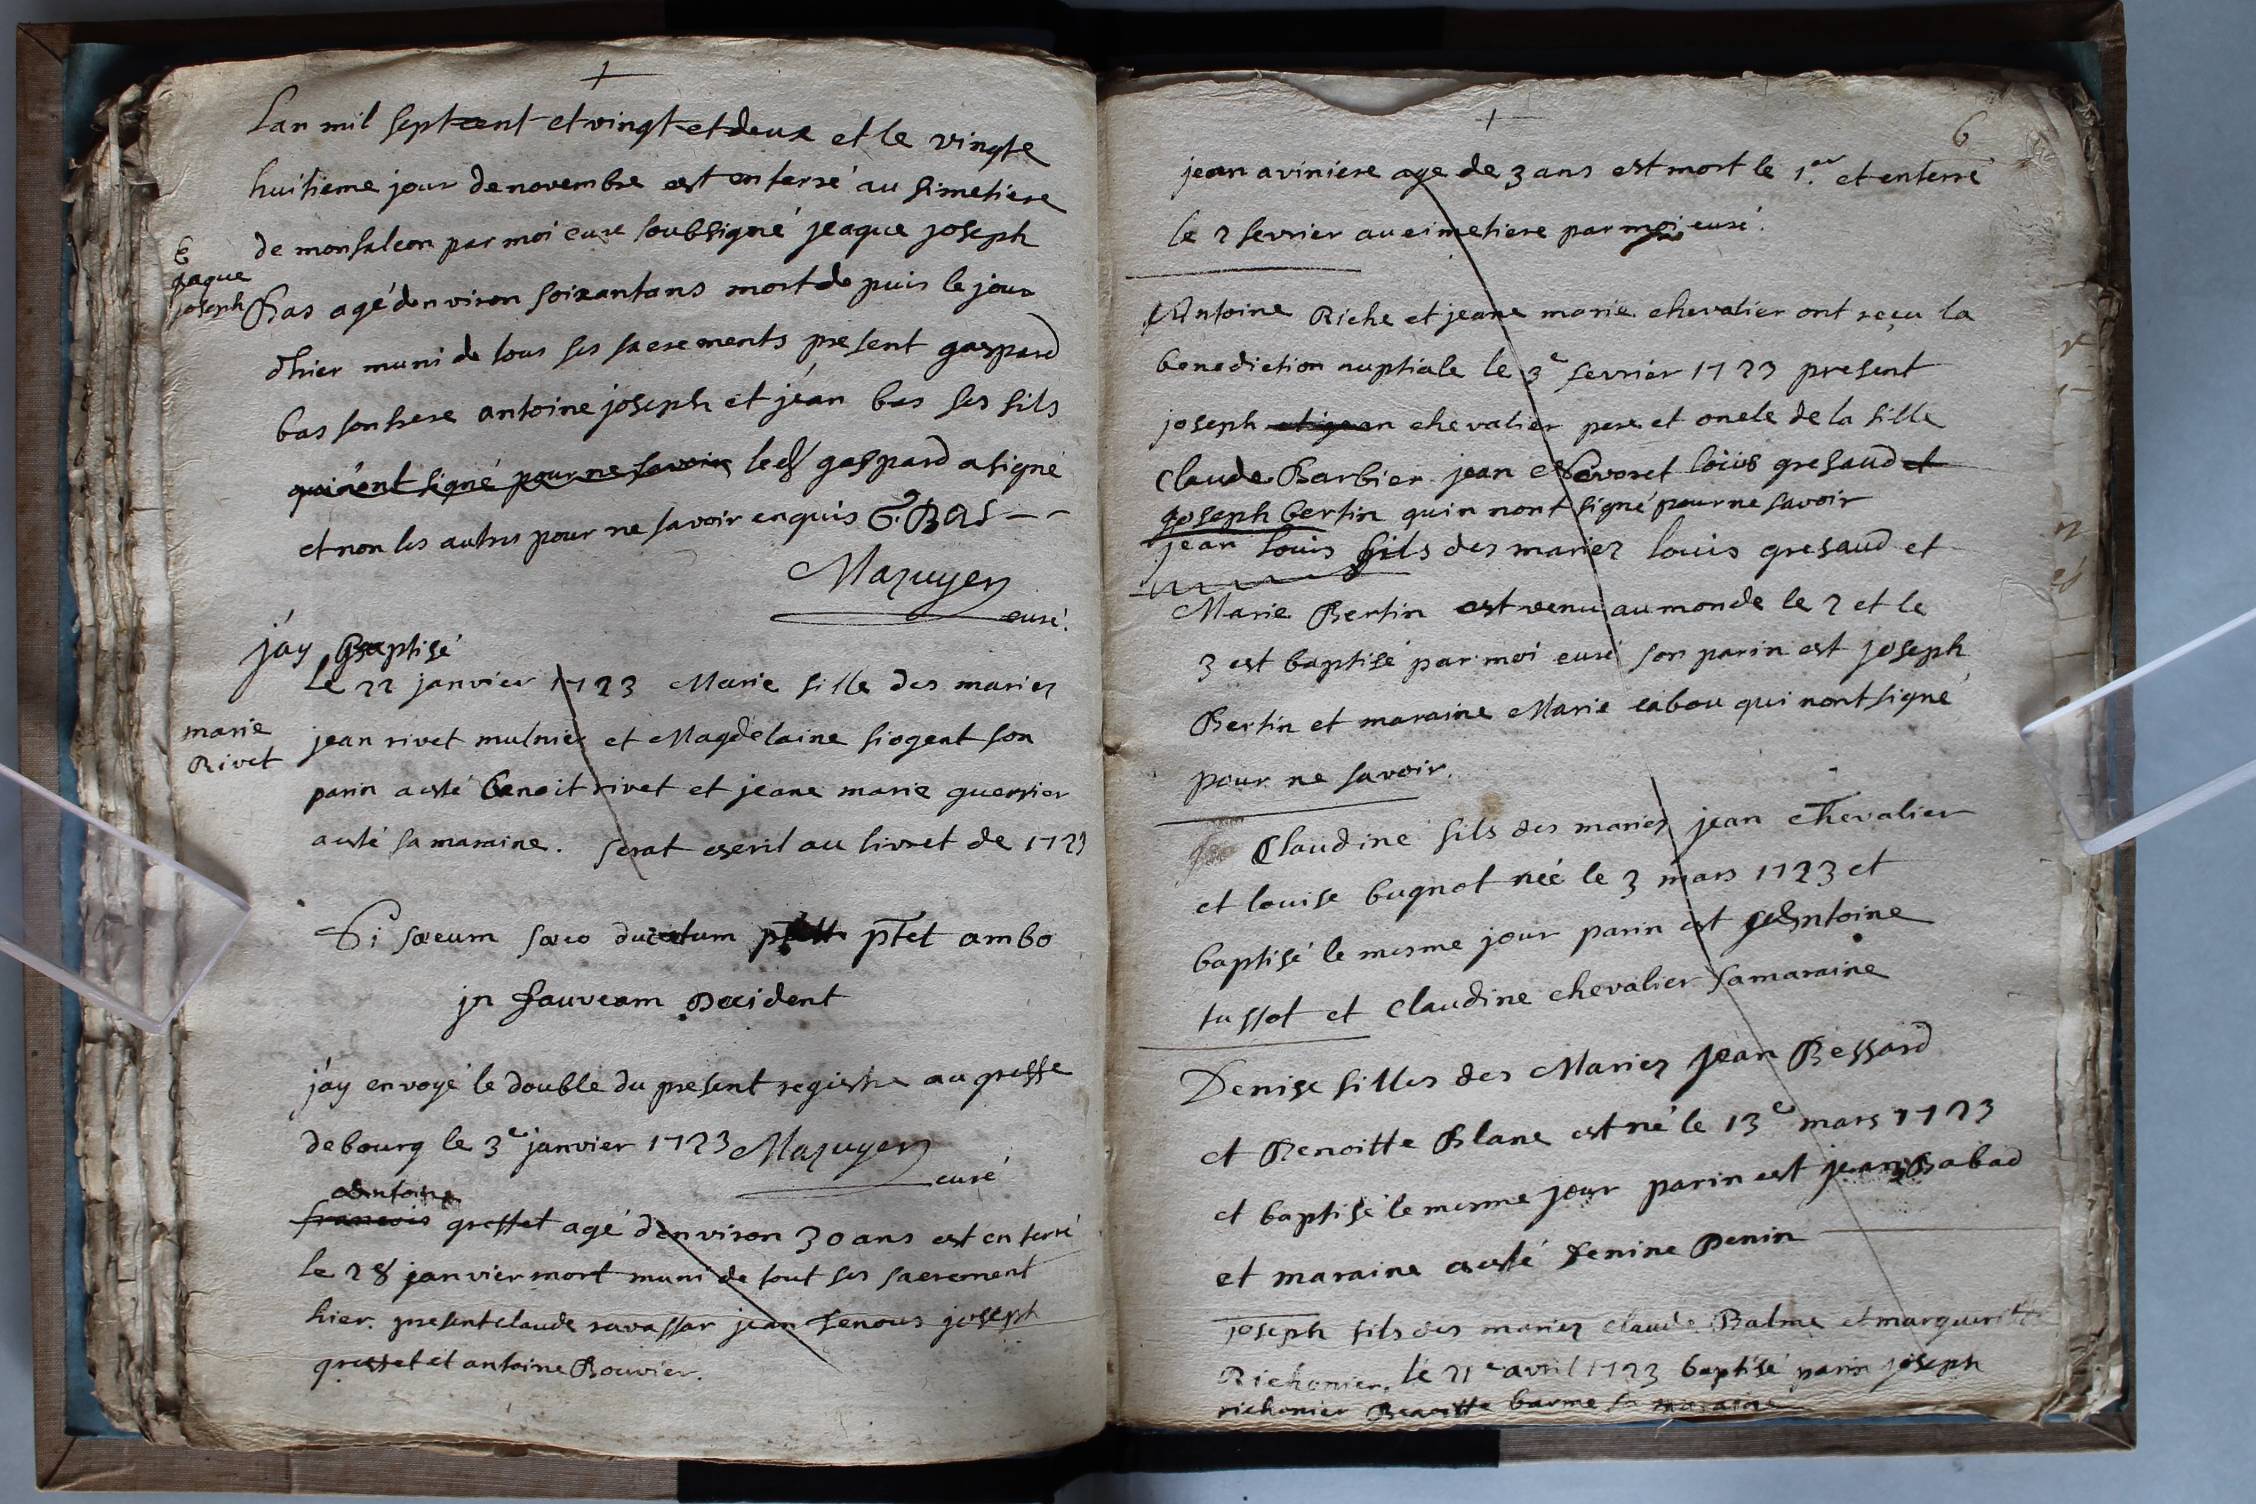 Lan mil septcent et vingt et deux et le vingte
huitieme jour de novembre est enterré au simetiere
de monfaleon par moi curé soubsigné jeaque joseph
E
jaque
joseph
Bas agé denviron soixantans mort de puis le jour
dhier muni de tous ses sacrements present gaspard
bas son frere antoine joseph et jean bas ses fils
quinont signé pour ne savoir led gaspard a signé
et non les autres pour ne savoir enquis G. BAS
Mazuyer
curé.
j'ay Baptisé
Le 22 janvier 1723 Marie fille des mariez
marie
Rivet
jean rivet mulnier et Magdelaine siogeat son
parin a esté benoit rivet et jeane marie guerrier
a esté sa maraine. serat escrit au livret de 1723
Si sæcum sæco ducatum ptet ambo
jn fauveam occident
j'ay envoyé le double du present registre au greffe
de bourg le 3e janvier 1723 Mazuyer
curé
Antoine
francois greffet agé denviron 30 ans est enterré
le 28 janvier mort muni de tout ses sacrement
hier. present claude ravassar jean fenous joseph
greffet et antoine Bouvier.
6
jean aviniere age de 3 ans est mort le 1.er et enterré
le 2 fevrier au cimetiere par moi curé.
Antoine Riche et jeane marie chevalier ont reçu la
benediction nuptiale le 3e fevrier 1723 present
joseph chevalier pere et oncle de la fille
Claude Barbier jean Nevoret loüis gresaud et
joseph bertin quin nont signé pour ne savoir
jean louis fils des mariez louis gresaud et
Marie Bertin est venu au monde le 2 et le
3 est baptisé par moi curé son parin est joseph
Bertin et maraine Marie cabou qui nont signé
pour ne savoir.
Claudine fils des mariez jean chevalier
et louise bugnot néé le 3 mars 1723 et
baptisé le mesme jour parin est Antoine
tussot et Claudine chevalier sa maraine
Denise filles des Mariez jean Bessard
et Benoitte Blanc est né le 13e mars 1723
et baptisé le mesme jour parin est jean Babad
et maraine a esté Fenine Penin
joseph fils des mariez claude Balme et margueritte
Richonier, le 21e avril 1723 baptisé parin joseph
richonier Benoitte barme sa maraine